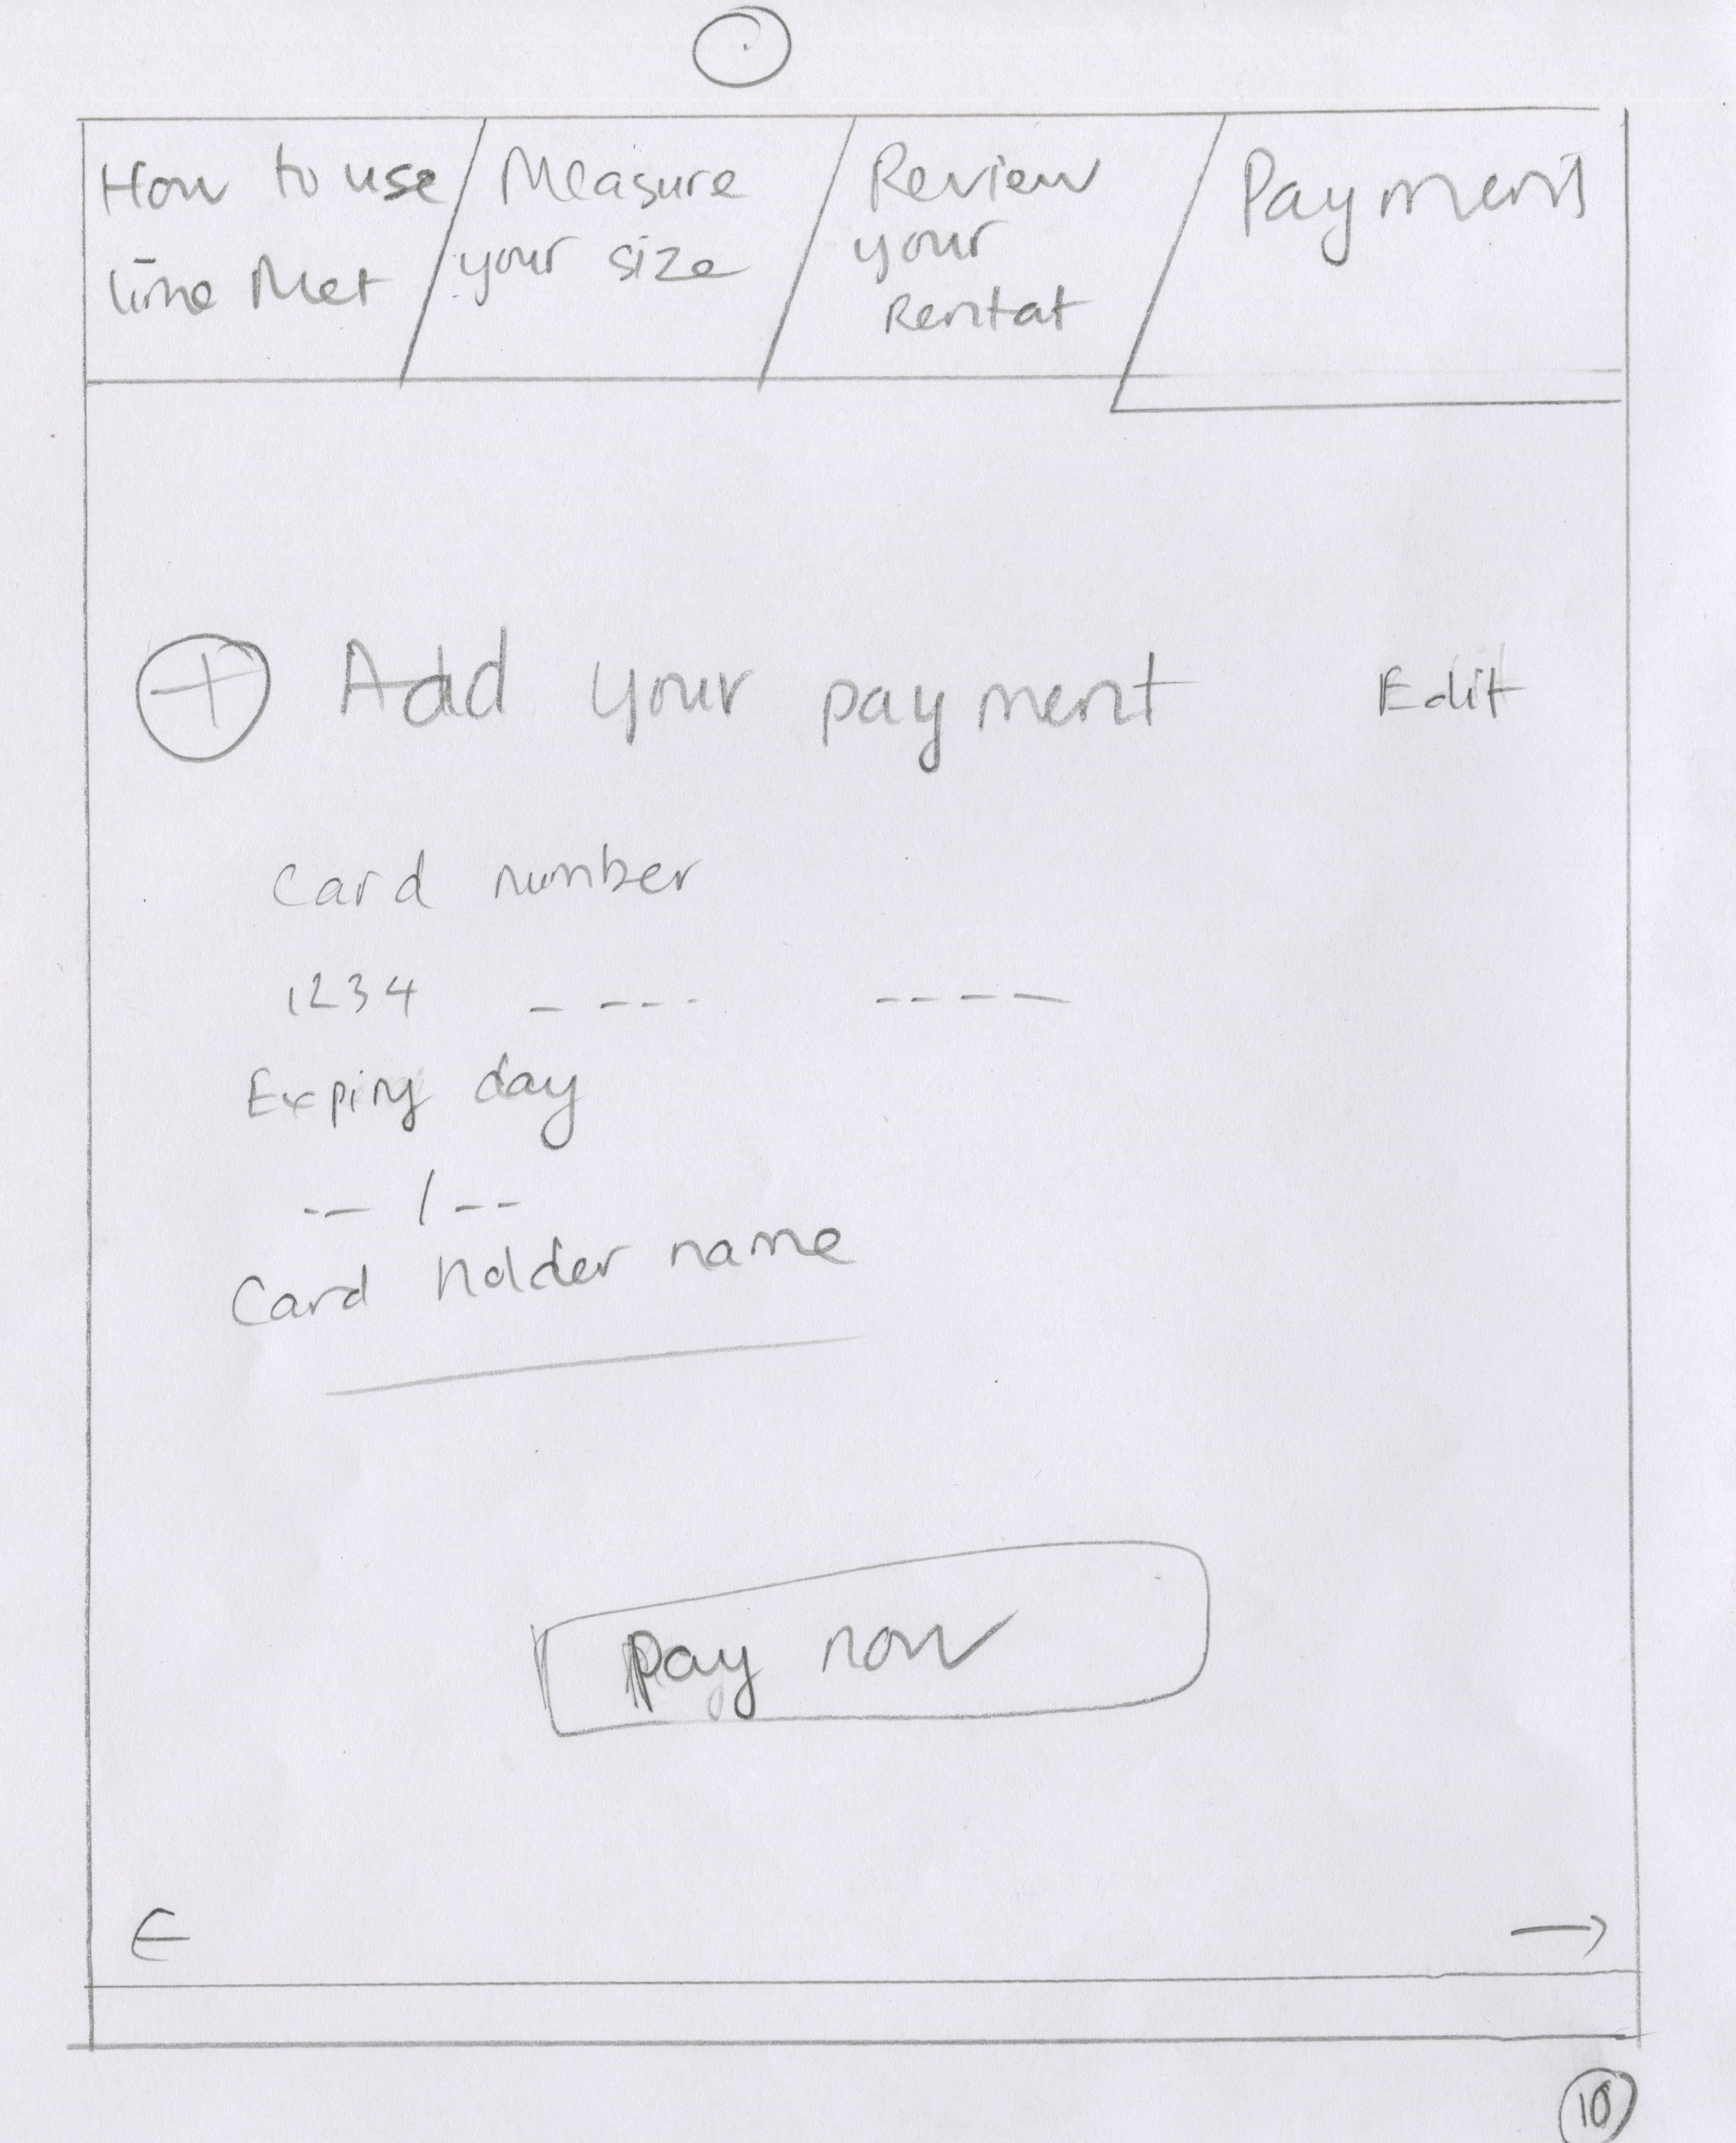 How to use
lime Met
Measure
your size
Review
your
Rentat
Payment
+ Add your payment
Edit
Card number
1234 _ _ _ _ _ _ _ _
Expiry day
_ _ / _ _
Card holder name
Pay now
← →
10